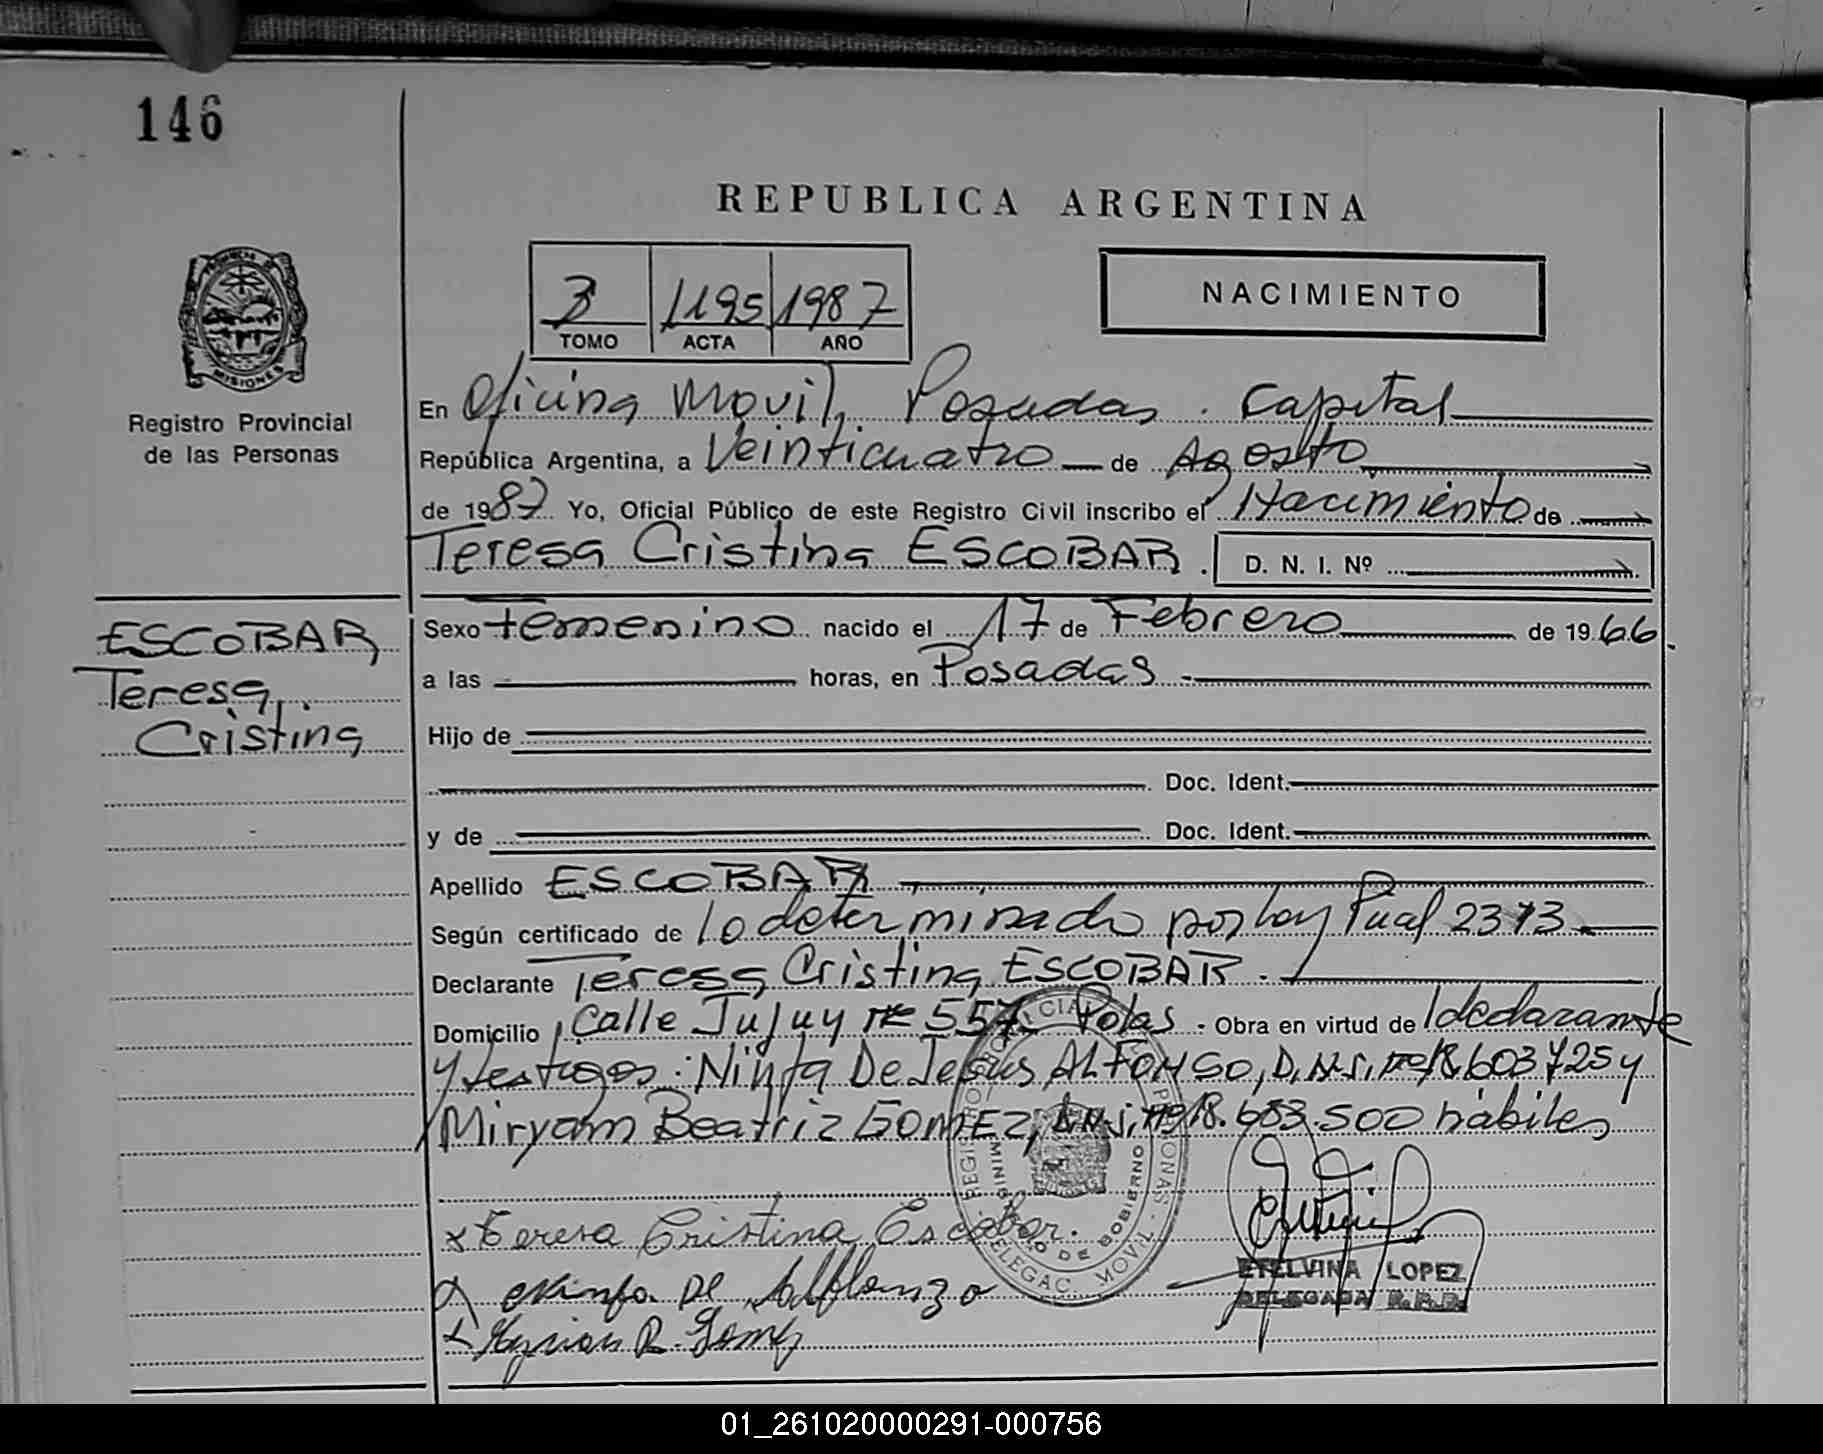 146
REPUBLICA ARGENTINA
PROVINCIA DE
MISIONES
Registro Provincial
de las Personas
3 1195 1987
TOMO ACTA AÑO
NACIMIENTO
En Oficina Movil, Posadas. Capital
República Argentina, a Veinticuatro de Agosto
de 1987 Yo, Oficial Público de este Registro Civil inscribo el Nacimiento de
Teresa Cristina ESCOBAR. D. N. I. Nº
ESCOBAR
Teresa
Cristina
Sexo Femenino nacido el 17 de Febrero de 1966.
a las horas, en Posadas
Hijo de
Doc. Ident.
y de Doc. Ident.
Apellido ESCOBAR
Según certificado de lo determinado por ley Pcial 2373
Declarante Teresa Cristina ESCOBAR.
Domicilio Calle Jujuy nº 557 Pdas. Obra en virtud de l declarante
y testigos: Ninfa De Jesus ALFONSO, D.N.I. nº 18.603725 y
Miryam Beatriz GOMEZ, D.N.I. nº 18.683.500 hábiles
x Teresa Cristina Escobar.
Ninfa De Alfonzo
x Myrian B. Gomez
MINISTERIO DE GOBIERNO
DELEGAC. MOVIL
ETELVINA LOPEZ
DELEGADA R.P.P.
01_261020000291-000756